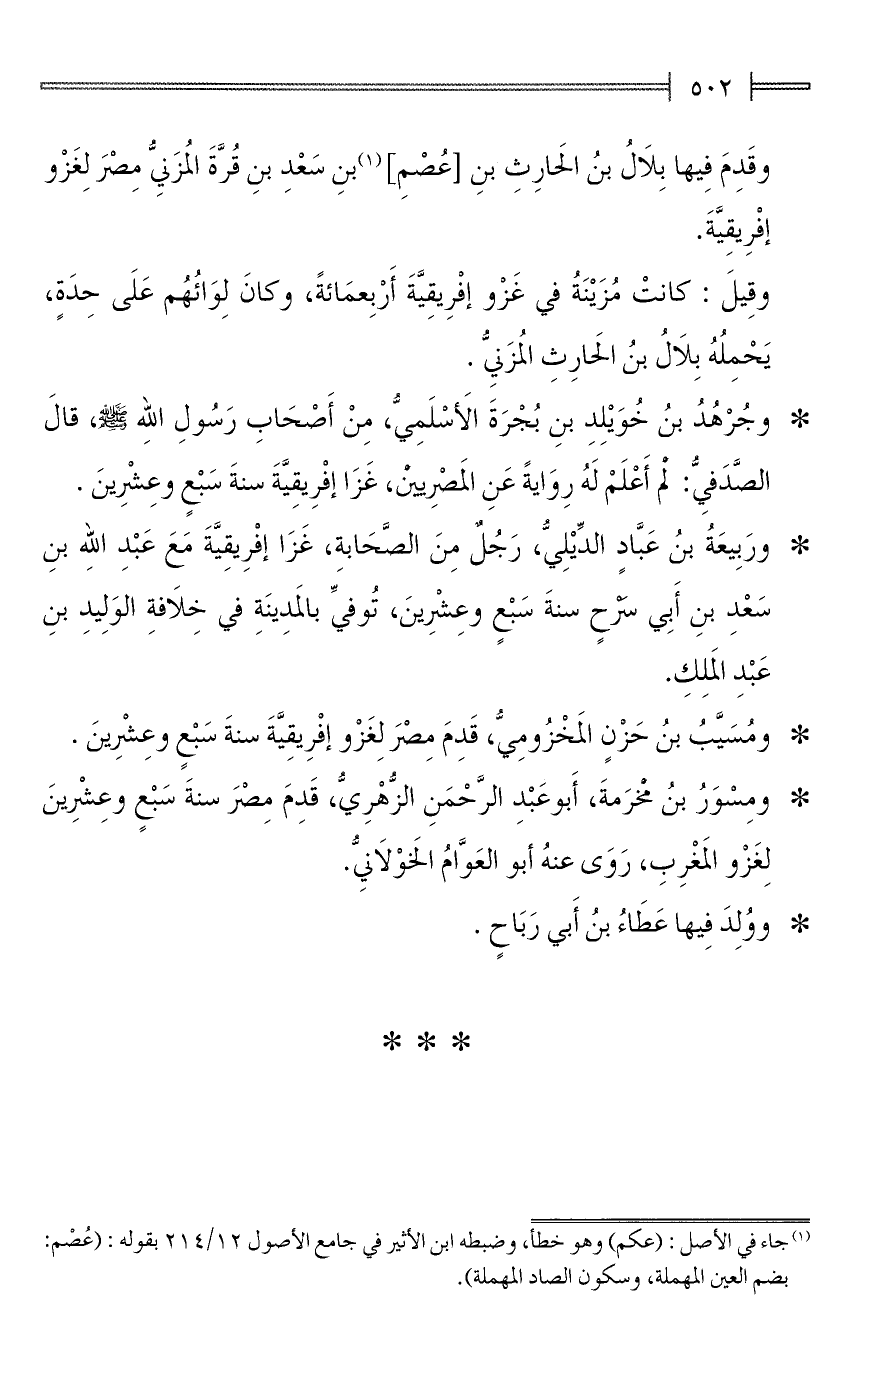 ٥٠٢
وقَدِمَ فِيها بِلَالُ بنُ الحَارِثِ بنِ [عُصْمِ](١) بنِ سَعْدِ بنِ قُرَّةَ المُزَنيُّ مِصْرَ لِغَزْوِ
إفْرِيقِيَّةَ.
وقِيلَ : كانتْ مُزَيْنَةُ في غَزْوِ إفْرِيقِيَّةَ أَرْبعمَائةً، وكانَ لِوَائُهُم عَلَى حِدَةٍ،
يَحْمِلُهُ بِلَالُ بنُ الحَارِثِ المُزَنيُّ .
* وجُرْهُدُ بنُ خُوَيْلِدِ بنِ بُجْرَةَ الأَسْلَمِيُّ، مِنْ أَصْحَابِ رَسُولِ اللهِ ﷺ، قالَ
الصَّدَفيُّ: لمْ أَعْلَمْ لَهُ رِوَايةً عَنِ المَصْرِيينْ، غَزَا إفْرِيقِيَّةَ سنةَ سَبْعٍ وعِشْرِينَ .
* ورَبِيعَةُ بنُ عَبَّادٍ الدِّيْلِيُّ، رَجُلٌ مِنَ الصَّحَابةِ، غَزَا إفْرِيقِيَّةَ مَعَ عَبْدِ اللهِ بنِ
سَعْدِ بنِ أَبي سَرْحٍ سنةَ سَبْعٍ وعِشْرِينَ، تُوفيِّ بالمَدِينَةِ في خِلَافةِ الوَلِيدِ بنِ
عَبْدِ المَلِكِ.
* ومُسَيَّبُ بنُ حَزْنٍ المَخْزُومِيُّ، قَدِمَ مِصْرَ لِغَزْوِ إفْرِيقِيَّةَ سنةَ سَبْعٍ وعِشْرِينَ .
* ومِسْوَرُ بنُ مَخْرَمةَ، أَبوعَبْدِ الرَّحْمَنِ الزُّهْرِيُّ، قَدِمَ مِصْرَ سنةَ سَبْعٍ وعِشْرِينَ
لِغَزْوِ المَغْرِبِ، رَوَى عنهُ أبو العَوَّامُ الخَوْلَانيُّ.
* ووُلِدَ فِيها عَطَاءُ بنُ أَبي رَبَاحٍ .
* * *
(١) جاء في الأصل : (عكم) وهو خطأ، وضبطه ابن الأثير في جامع الأصول ٢١٤/١٢ بقوله : (عُصْم:
بضم العين المهملة، وسكون الصاد المهملة).